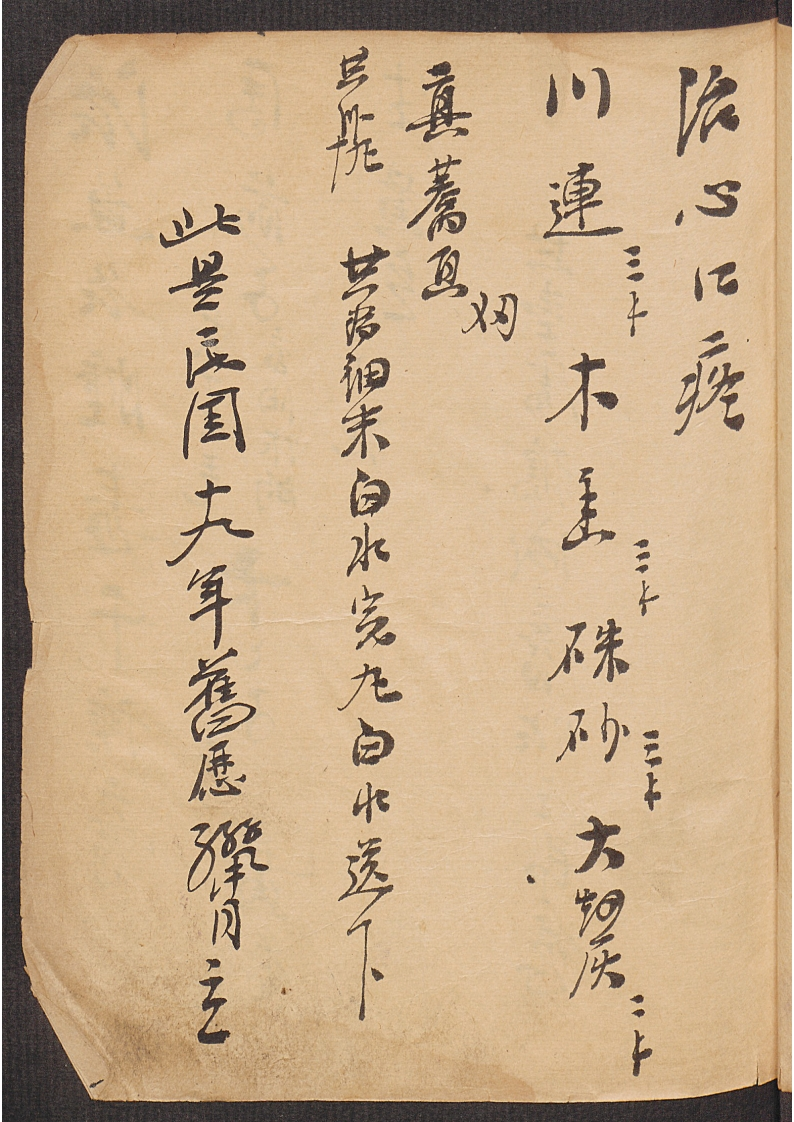 治心口疼
川連三卜木香三卜硃砂三卜大灰二卜
真蒼
共為細末白水完丸白水送下
此是民国十九年舊歷臘月立